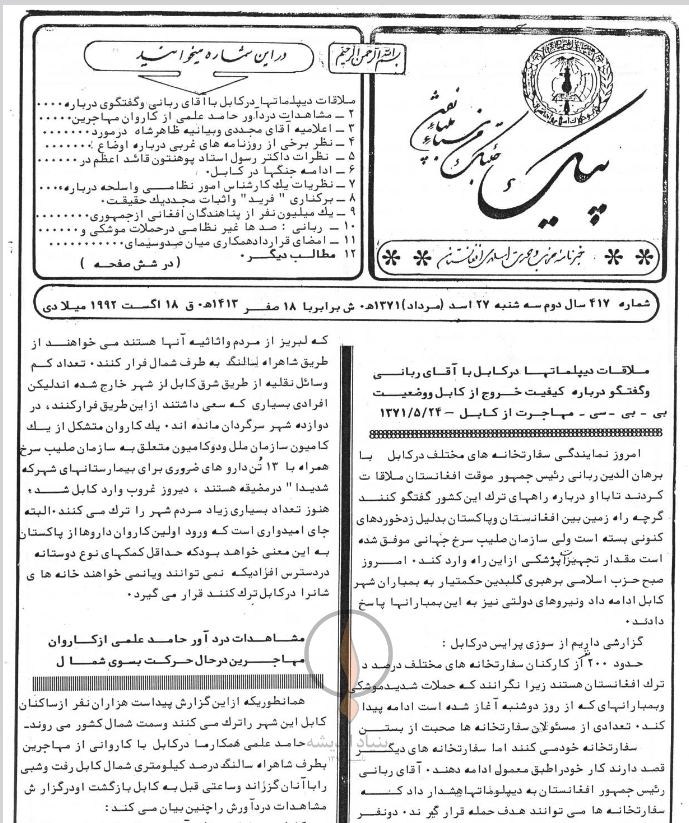 بسم الله الرحمن الرحیم
در این شماره میخوانید
ملاقات دیپلماتها درکابل با آقای ربانی وگفتگوی درباره....
۲ ــ مشاهدات دردآور حامد علمی از کاروان مهاجرین.....
۳ ــ اعلامیه آقای مجددی وبیانیه ظاهرشاه درمورد......
۴ ــ نظر برخی از روزنامه های غربی درباره اوضاع ......
۵ ــ نظرات داکتر رسول استاد پوهنتون قائد اعظم در.....
۶ ــ ادامه جنگها در کابل.
۷ ــ نظریات یک کارشناس امور نظامی واسلحه درباره....
۸ ــ برکناری " فرید" واثبات مجددیک حقیقت.
۹ ــ یک میلیون نفر از پناهندگان افغانی ازجمهوری.......
۱۰ ــ ربانی : صد ها غیر نظامی درحملات موشکی و.....
۱۱ ــ امضای قراردادهمکاری میان صدوسیمای..........
۱۲ مطالب دیگر.
( در شش صفحه )
پیک
خبرنامه حزب وحدت اسلامی افغانستان
شماره ۴۱۷ سال دوم سه شنبه ۲۷ اسد (مرداد) ۱۳۷۱ه. ش برابربا ۱۸ صفر ۱۴۱۳ه. ق ۱۸ اگست ۱۹۹۲ میلادی
ملاقات دیپلماتها درکابل با آقای ربانی
وگفتگو درباره کیفیت خروج از کابل ووضعیت
بی - بی - سی - مهاجرت از کابل – ۱۳۷۱/۵/۲۴
امروز نمایندگی سفارتخانه های مختلف درکابل با
برهان الدین ربانی رئیس جمهور موقت افغانستان ملاقات
کردند تابااو درباره راههای ترک این کشور گفتگو کنند
گرچه راه زمین بین افغانستان وپاکستان بدلیل زدخوردهای
کنونی بسته است ولی سازمان صلیب سرخ جهانی موفق شده
است مقدار تجهیزات پزشکی از این راه وارد کند. امروز
صبح حزب اسلامی برهبری گلبدین حکمتیار به بمباران شهر
کابل ادامه داد ونیروهای دولتی نیز به این بمبارانها پاسخ
دادند.
گزارشی داریم از سوزی پرایس درکابل :
حدود ۲۰۰ نفر از کارکنان سفارتخانه های مختلف درصدد
ترک افغانستان هستند زیرا نگرانند که حملات شدیدموشکی
وبمبارانهای که از روز دوشنبه آغاز شده است ادامه پیدا
کند. تعدادی از مسئولان سفارتخانه ها صحبت از بستن
سفارتخانه خودمی کنند اما سفارتخانه های دیگر
قصد دارند کار خودراطبق معمول ادامه دهند. آقای ربانی
رئیس جمهور افغانستان به دیپلوماتهاهشدار داد که
سفارتخانه ها می توانند هدف حمله قرار گیرند. دونفر
که لبریز از مردم واثاثیه آنها هستند می خواهند از
طریق شاهراه سالنگ به طرف شمال فرار کنند. تعداد کم
وسائل نقلیه از طریق شرق کابل از شهر خارج شده اندلیکن
افرادی بسیاری که سعی داشتند ازاین طریق فرارکنند، در
دوازده شهر سرگردان مانده اند. یک کاروان متشکل از یک
کامیون سازمان ملل ودوکامیون متعلق به سازمان صلیب سرخ
همراه با ۱۳ تن دارو های ضروری برای بیمارستانهای شهرکه
شدیدا" درمضیقه هستند ، دیروز غروب وارد کابل شد.
هنوز تعداد بسیاری زیاد مردم شهر را ترک می کنند. البته
جای امیدواری است که ورود اولین کاروان داروهااز پاکستان
به این معنی خواهد بودکه حداقل کمکهای نوع دوستانه
دردسترس افرادیکه نمی توانند ویانمی خواهند خانه های
شانرا درکابل ترک کنند قرار می گیرد.
مشاهدات درد آور حامد علمی ازکاروان
مهاجرین درحال حرکت بسوی شمال
همانطوریکه ازاین گزارش پیداست هزاران نفر ازساکنان
کابل این شهر راترک می کنند وسمت شمال کشور می روند.
حامد علمی همکارما درکابل با کاروانی از مهاجرین
بطرف شاهراه سالنگ درصد کیلومتری شمال کابل رفت وشبی
راباآنان گزراند وساعتی قبل به کابل بازگشت اودرگزارش
مشاهدات دردآورش راچنین بیان می کند :
بنیاد اندیشه